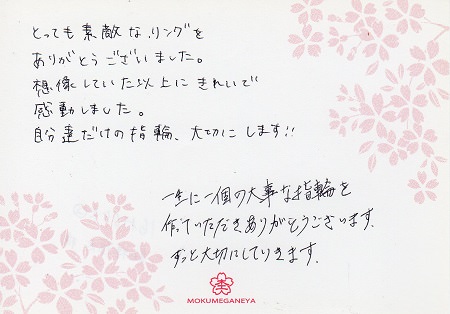 とっても素敵なリングを
ありがとうございました。
想像していた以上にきれいで
感動しました。
自分達だけの指輪、大切にします!!
一生に一個の大事な指輪を
作っていただきありがとうございます。
ずっと大切にしていきます。
MOKUMEGANEYA